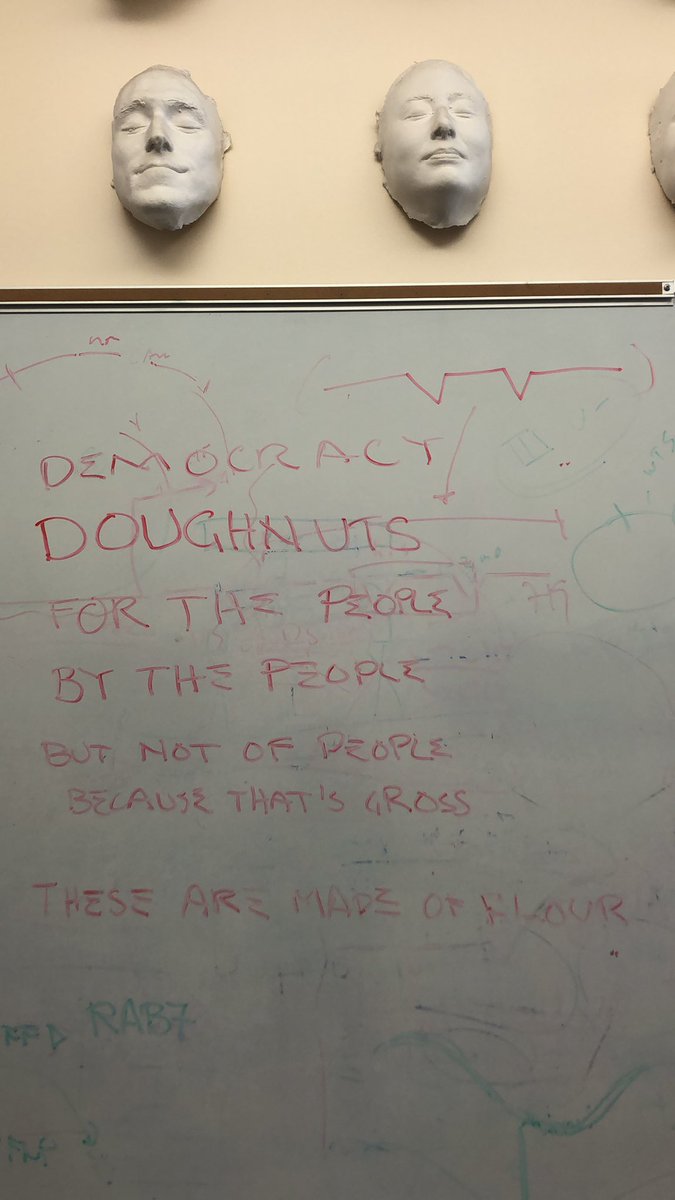 DEMOCRACY
DOUGHNUTS
FOR THE PEOPLE
BY THE PEOPLE
BUT NOT OF PEOPLE
BECAUSE THAT'S GROSS
THESE ARE MADE OF FLOUR
RAB7